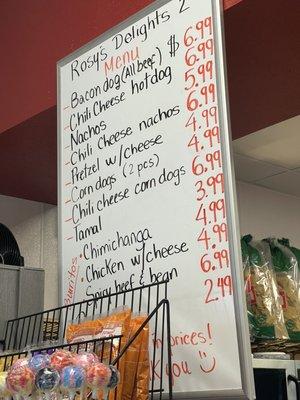 Rosy's Delights 2
Menu
- Bacon dog (All beef) $ 6.99
- Chili Cheese hotdog 6.99
- Nachos 5.99
- Chili cheese nachos 6.99
- Pretzel w/cheese 4.99
- Corn dogs (2 pcs) 4.99
- Chili cheese corn dogs 6.99
- Tamal 3.99
Burrito's
- Chimichanga 4.99
- Chicken w/cheese 4.99
- Spicy beef & bean 6.99
2.49
prices!
you